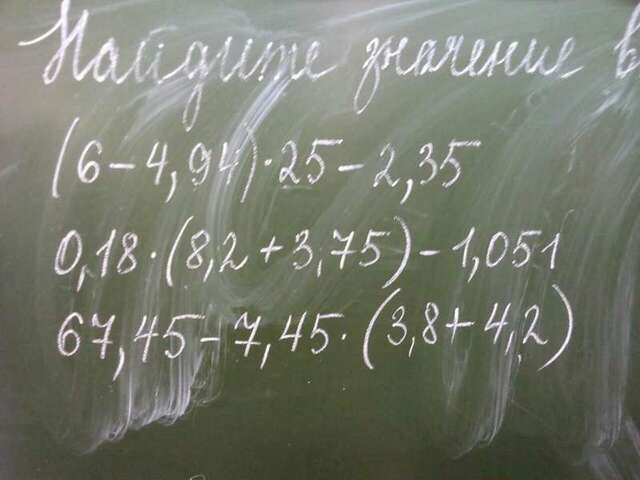 Найдите значение в
(6-4,94)·25-2,35
0,18·(8,2+3,75)-1,051
67,45-7,45·(3,8+4,2)